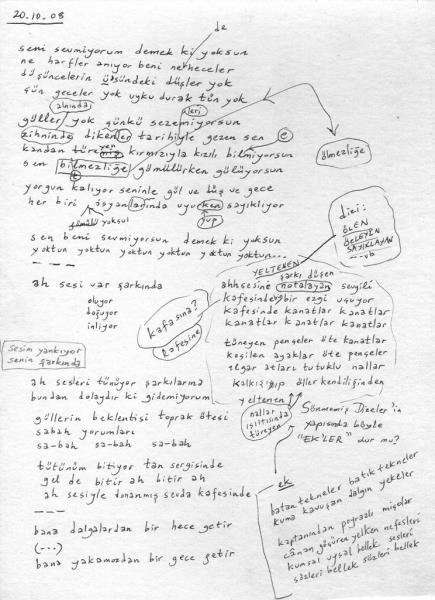 20.10.08
de
seni sevmiyorum demek ki yoksun
ne harfler anıyor beni ne heceler
düşüncelerin üstündeki düşler yok
gün geceler yok uyku durak tün yok
alnında
leri
güller yok günkü sezemiyorsun
zihninde dikenler tarihiyle gezen sen e
kandan türemiş kırmızıyla kızılı bilmiyorsun
yen
sen bilmezliğe gömülürken gülüyorsun
ölmezliğe
yorgun kalıyor seninle gül ve düş ve gece
her biri isyanlarında uyurken sayıklıyor
gömülü yoksul
yup
sen beni sevmiyorsun demek ki yoksun
yoktun yoktun yoktun yoktun yoktun...
dişi:
ÖLEN
ÖLEYEN
SAYIKLAYAN
--vb
----
ah sesi var şarkında
oluyor
doğuyor
inliyor
kafasına?
kafesine
YELTENEN
şarkı düşen
ah hsesine notalayan sevgili
kafesinde bir ezgi uçuyor
kafesinde kanatlar kanatlar
kanatlar kanatlar kanatlar
tüneyen pençeler öte kanatlar
koşilen ayaklar öte pençeler
rüzgar atları tutuklu nallar
kalkışıp öller kendiliğinden
yeltenen
nallar
ışıltısında
türeyen
Sönmemiş Dizeler'in
yapısında böyle
"EK'LER" dur mu?
Sesim yankıyor
senin şarkında
ah sesleri tünüyor şarkılarına
bundan dolayıdır ki gidemiyorum
güllerin beklentisi toprak ötesi
sabah yorumları
sa-bah sa-bah sa-bah
tütünüm bitiyor tan sergisinde
gel de bitir ah bitir ah
ah sesiyle donanmış sevda kafesinde
----
bana dalgalardan bir hece getir
(---)
bana yakamozdan bir gece getir
ek
batan tekneler batık tekneler
kuma kavuşan dalgın yekeler
kaptanından poyrazlı miçolar
canan göçüren yelken nefesleri
kumsal uysal bellek sesleri
sözleri bellek sözleri bellek